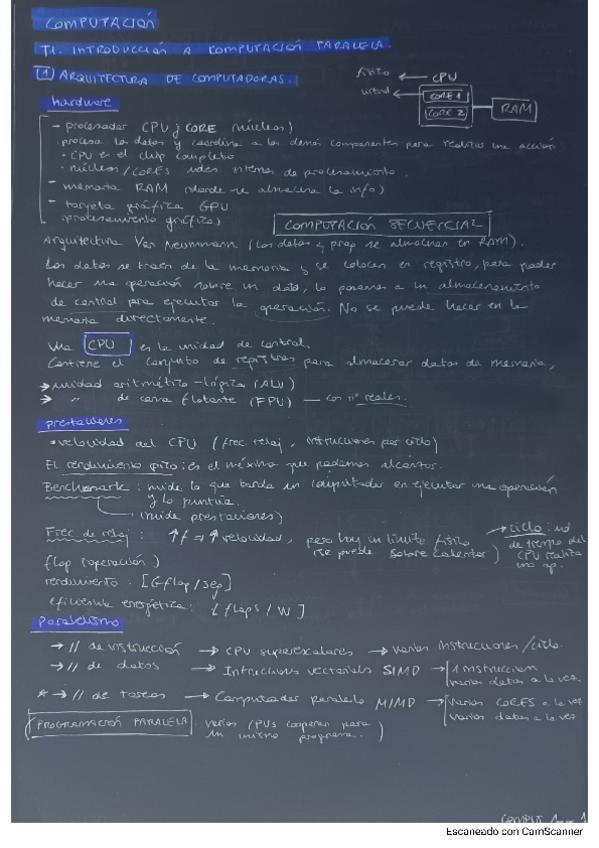 COMPUTACIÓN
T1. INTRODUCCIÓN A COMPUTACIÓN PARALELA.
(1) ARQUITECTURA DE COMPUTADORAS.
físico ← CPU
virtual ← CORE 1
CORE 2
RAM
hardware
- procesador CPU y CORE (núcleos)
procesa los datos y coordina a los demás componentes para realizar una acción
• CPU es el chip completo
• núcleos/CORES udes internas de procesamiento.
- memoria RAM (donde se almacena la info)
- tarjeta gráfica GPU
(procesamiento gráfico)
COMPUTACIÓN SECUENCIAL
Arquitectura Von Neumann (los datos y prog se almacenan en RAM).
Los datos se traen de la memoria y se colocan en registro, para poder
hacer una operación sobre un dato, lo pasamos a un almacenamiento
de control para ejecutar la operación. No se puede hacer en la
memoria directamente.
Una CPU es la unidad de control.
Contiene el conjunto de registros para almacenar datos de memoria,
→ unidad aritmético-lógica (ALU)
→ " de coma flotante (FPU) — con nº reales.
prestaciones
• velocidad del CPU (frec. reloj, instrucciones por ciclo)
El rendimiento pico: es el máximo que podemos alcanzar.
Benchmark: mide lo que tarda un computador en ejecutar una operación
y lo puntúa.
(mide prestaciones)
Frec. de reloj: ↑f ⇒ ↑velocidad, pero hay un límite físico
(se puede sobrecalentar)
→ ciclo: ud
de tiempo del
CPU realiza
una op.
flop (operación)
rendimiento: [Gflop/seg]
eficiencia energética: [flops/W]
Paralelismo
→ // de instrucción → CPU superescalares → Varias instrucciones/ciclo.
→ // de datos → Intrucciones vectoriales SIMD → 1 instrucción
varios datos a la vez.
* → // de tareas → Computador paralelo MIMD → Varios CORES a la vez
Varios datos a la vez
PROGRAMACIÓN PARALELA: varios CPUs cooperan para
un mismo programa.)
Escaneado con CamScanner